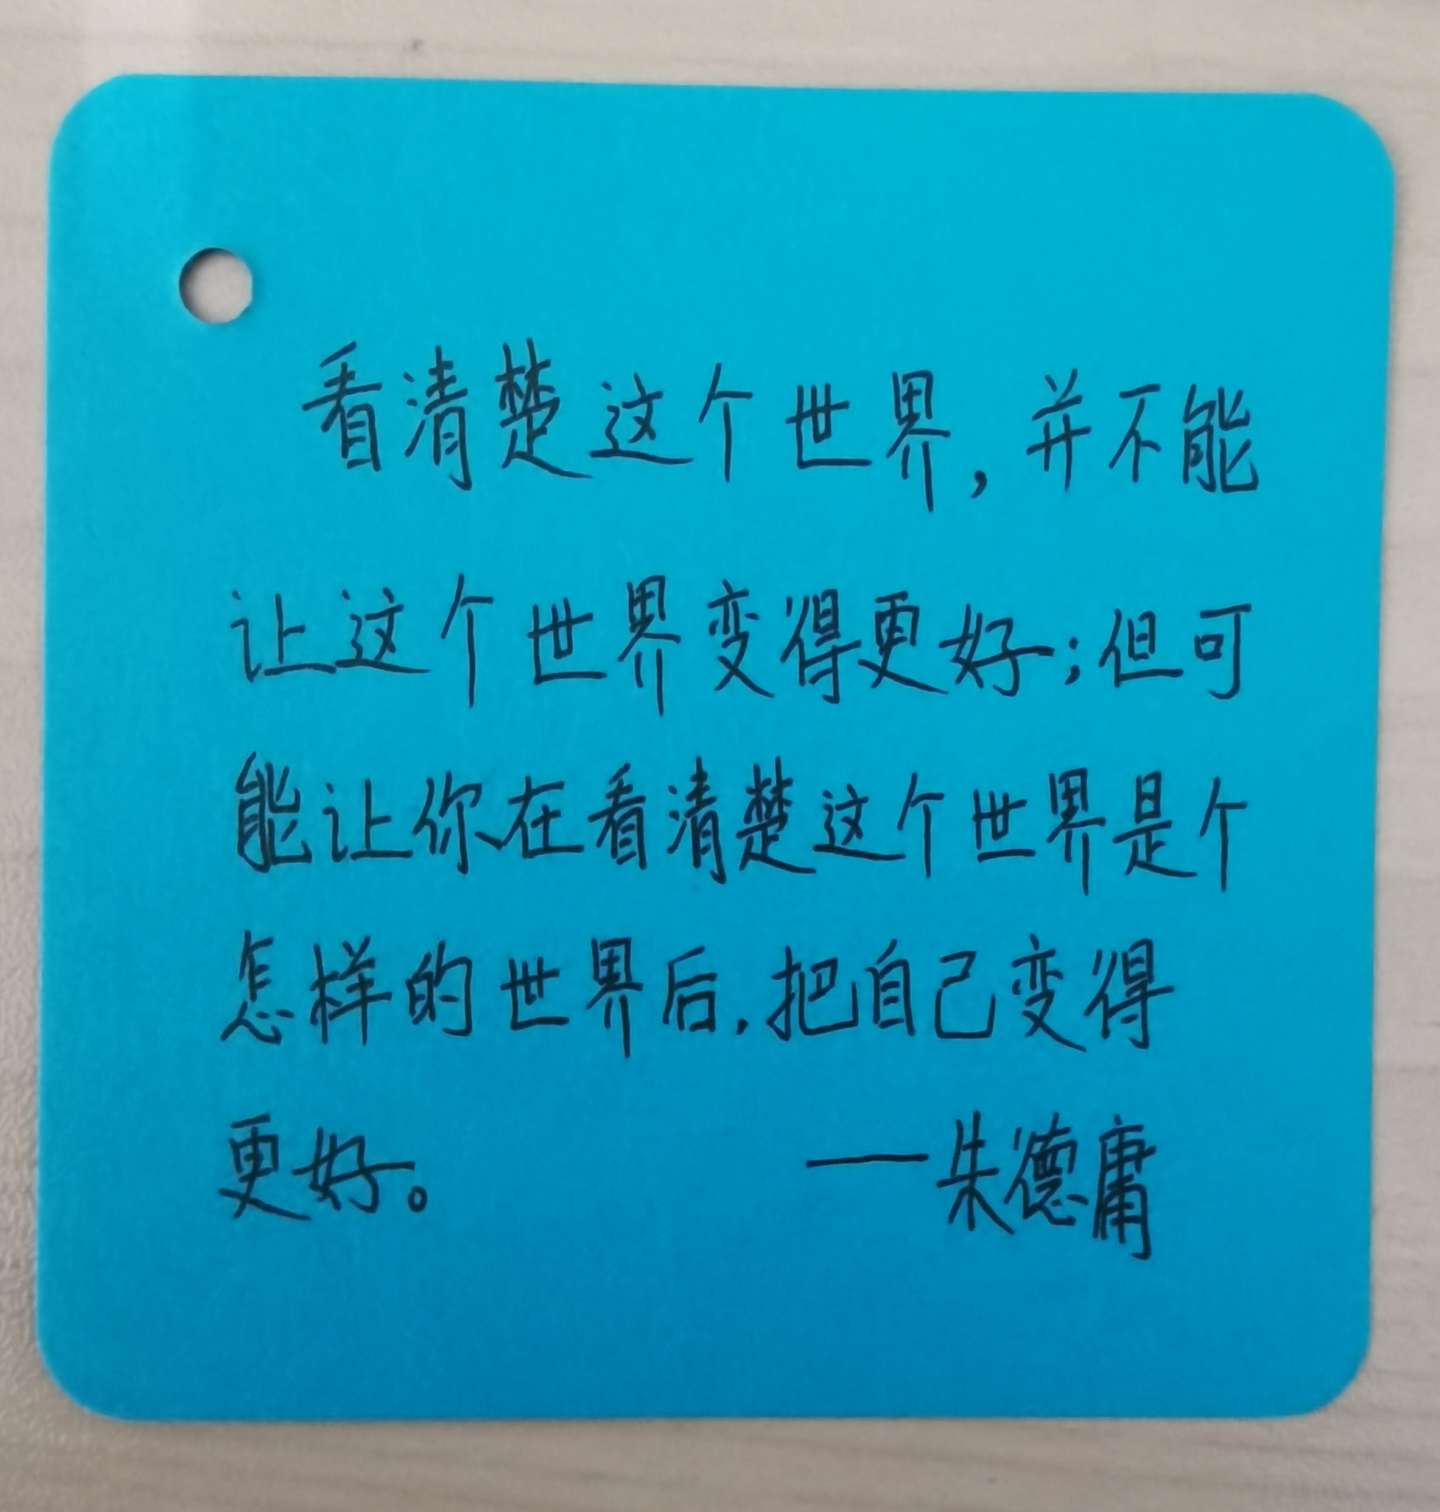 看清楚这个世界，并不能
让这个世界变得更好；但可
能让你在看清楚这个世界是个
怎样的世界后，把自己变得
更好。 —朱德庸